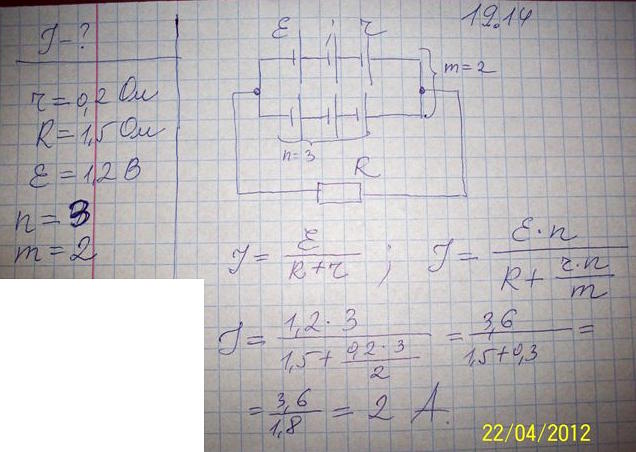 19.14
I - ?
r = 0,2 Ом
R = 1,5 Ом
ℰ = 1,2 В
n = 3
m = 2
ℰ ; r
m = 2
n = 3
R
I = ℰ / (R + r) ; I = ℰ · n / (R + (r · n) / m)
I = 1,2 · 3 / (1,5 + (0,2 · 3) / 2) = 3,6 / (1,5 + 0,3) =
= 3,6 / 1,8 = 2 А.
22/04/2012